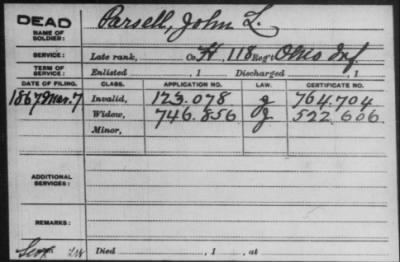 DEAD Parsell, John L.
NAME OF SOLDIER:
SERVICE: Late rank, Co. H, 118 Reg't Ohio Inf.
TERM OF SERVICE: Enlisted , 1 Discharged , 1
DATE OF FILING. CLASS. APPLICATION NO. LAW. CERTIFICATE NO.
1867 Mar. 7 Invalid, 123.078 g 764.704
Widow, 746.856 g 522.606
Minor,
ADDITIONAL SERVICES:
REMARKS:
Died , 1 , at